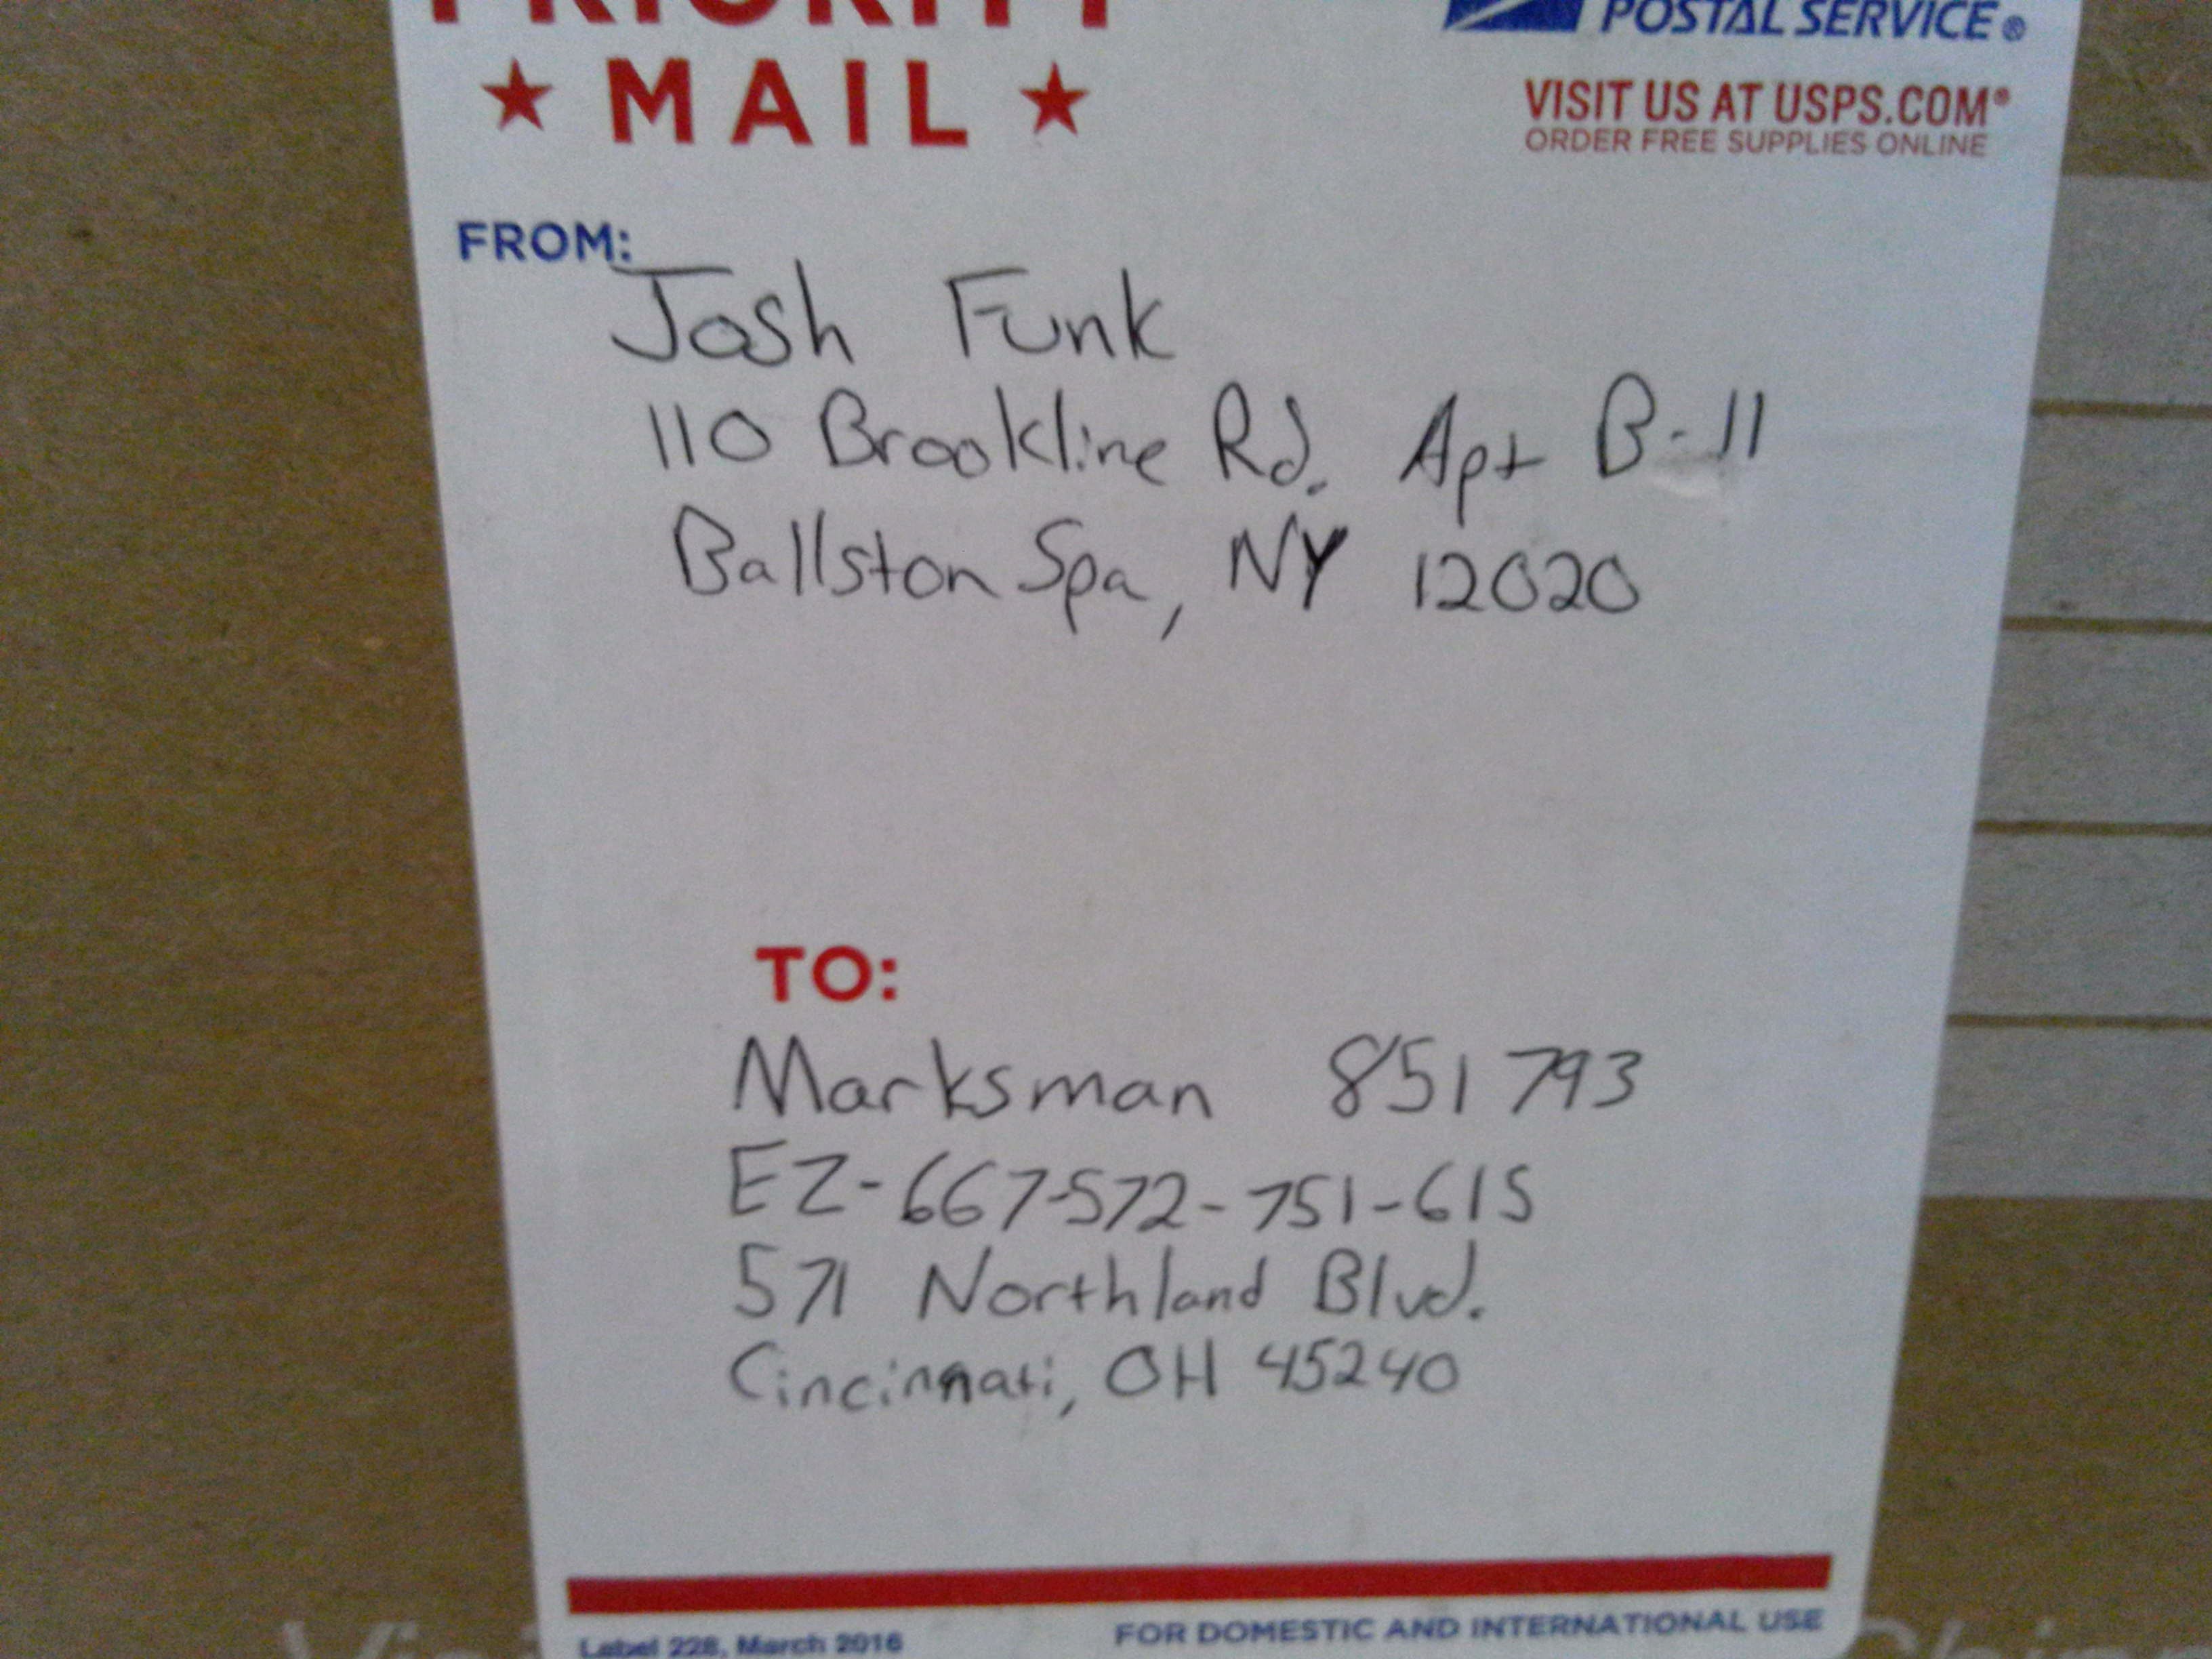 PRIORITY
★ MAIL ★
POSTAL SERVICE®
VISIT US AT USPS.COM®
ORDER FREE SUPPLIES ONLINE
FROM:
Josh Funk
110 Brookline Rd. Apt B-11
Ballston Spa, NY 12020
TO:
Marksman 851793
EZ-667-572-751-615
571 Northland Blvd.
Cincinnati, OH 45240
Label 228, March 2016
FOR DOMESTIC AND INTERNATIONAL USE